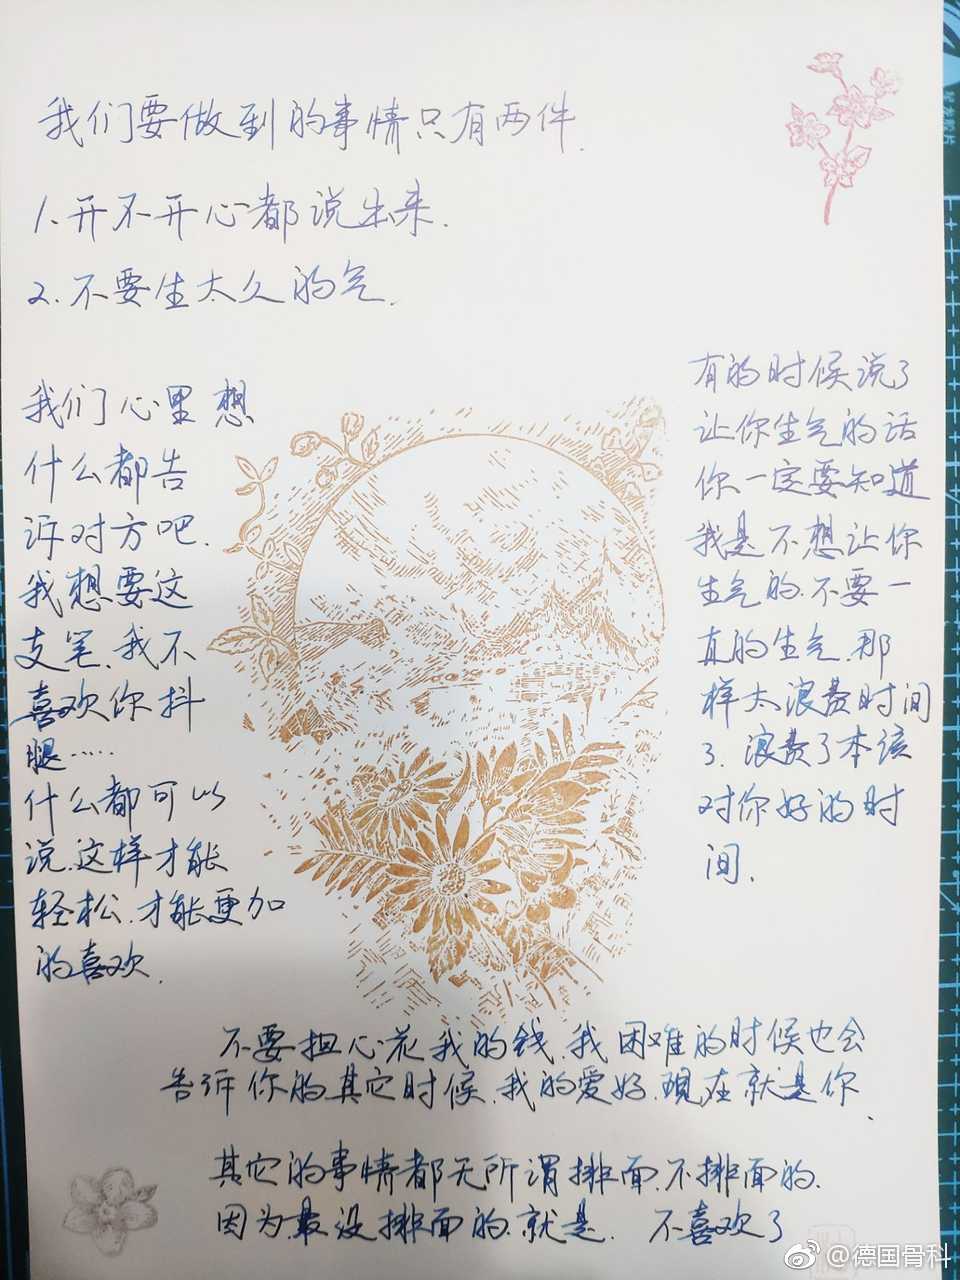 我们要做到的事情只有两件.
1.开不开心都说出来.
2.不要生太久的气.
我们心里想
什么都告
诉对方吧.
我想要这
支笔.我不
喜欢你抖
腿……
什么都可以
说.这样才能
轻松.才能更加
的喜欢.
有的时候说了
让你生气的话
你一定要知道
我是不想让你
生气的.不要一
直的生气.那
样太浪费时间
了.浪费了本该
对你好的时
间.
不要担心花我的钱.我困难的时候也会
告诉你的其它时候.我的爱好.现在就是你.
其它的事情都无所谓排面.不排面的.
因为最没排面的.就是. 不喜欢了
@德国骨科